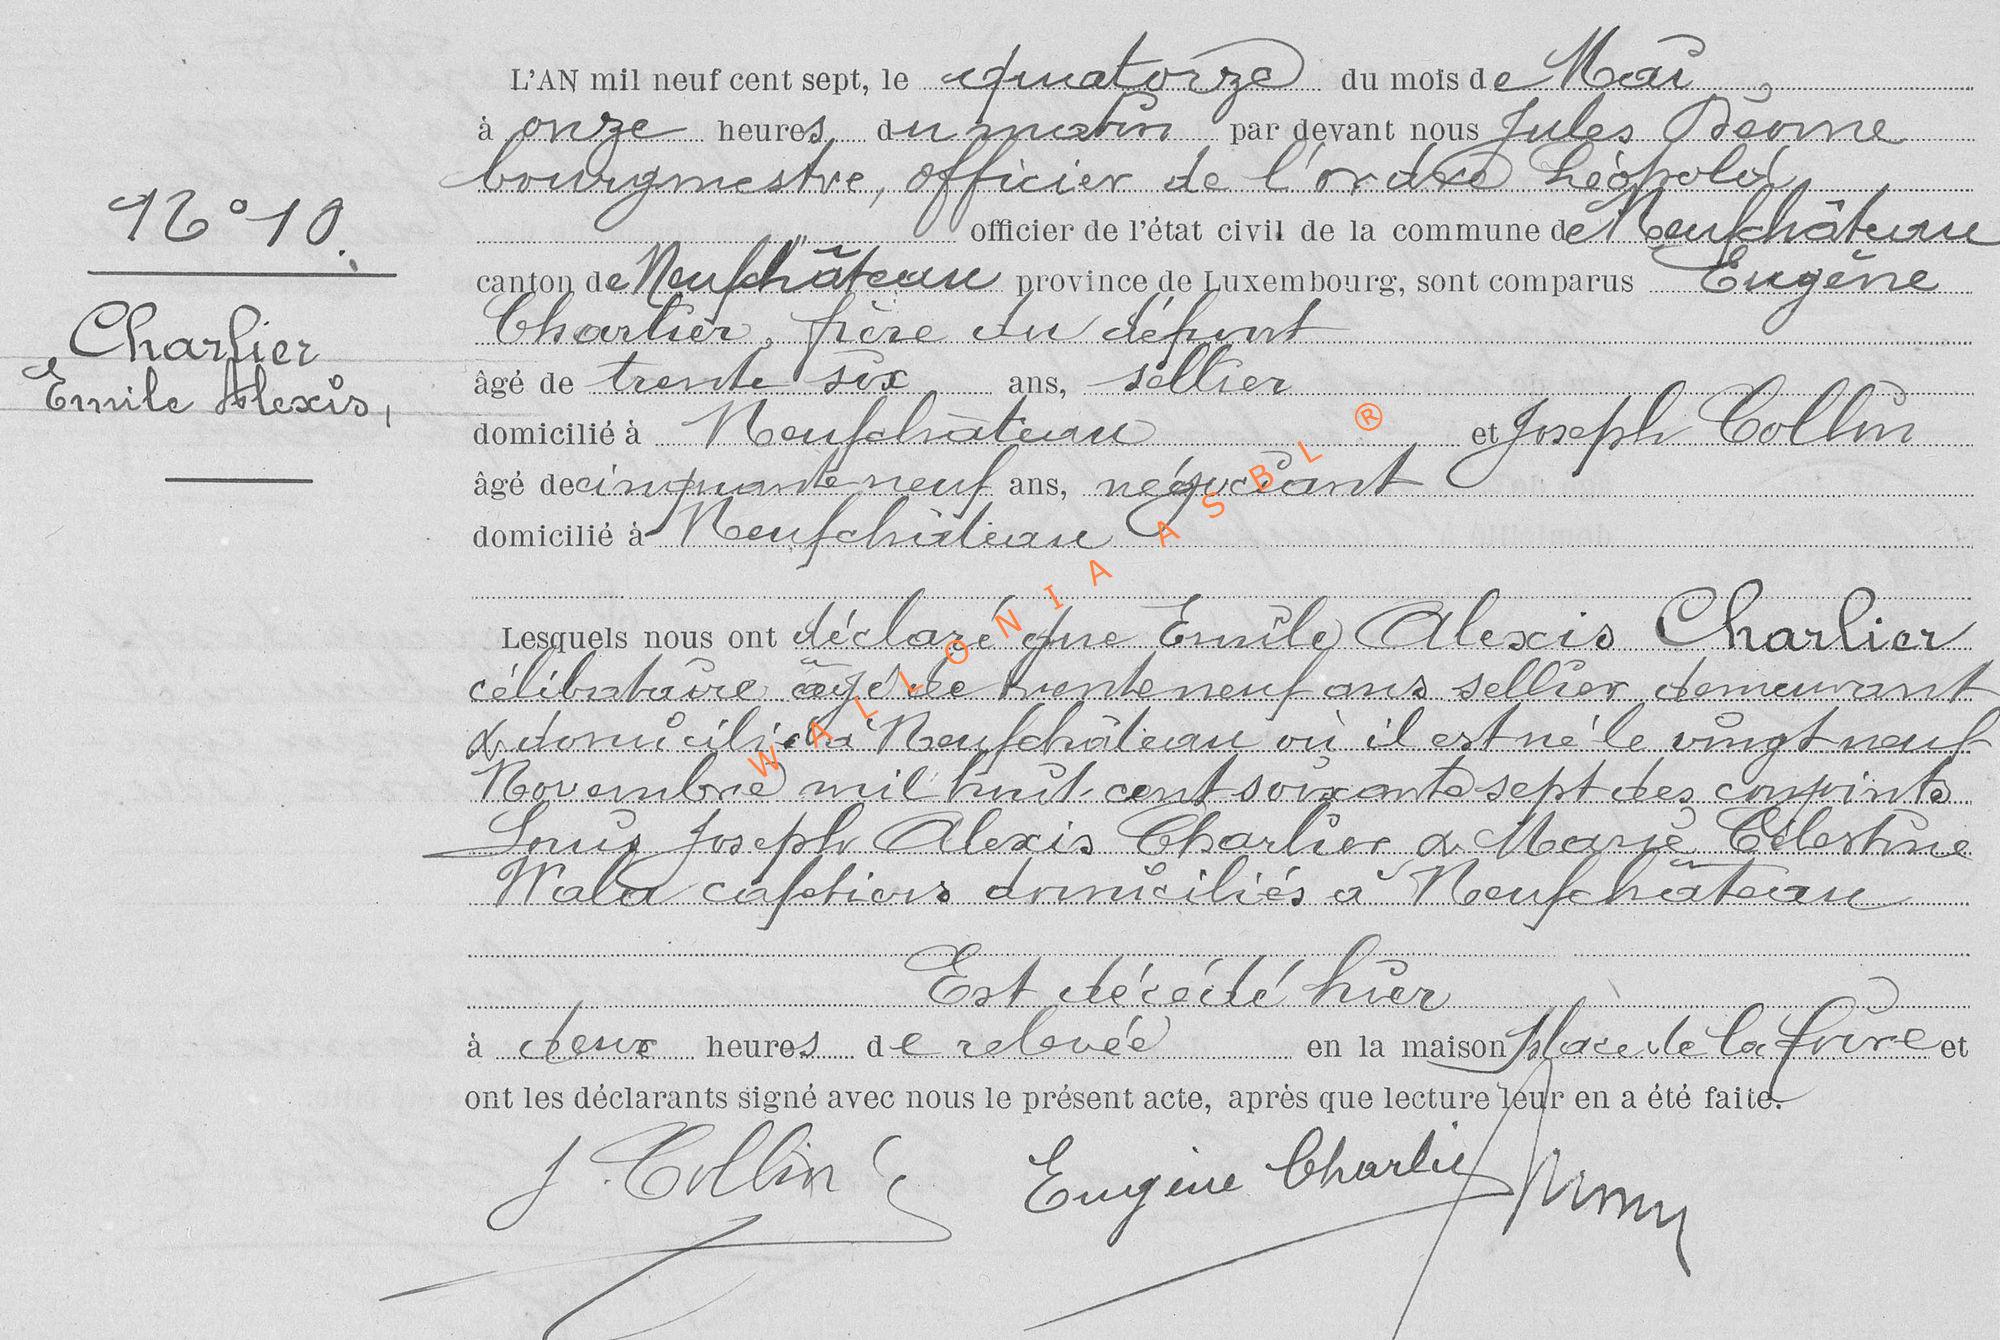 L'AN mil neuf cent sept, le quatorze du mois de Mai,
à onze heures du matin par devant nous Jules
bourgmestre, officier de l'ordre Léopold
officier de l'état civil de la commune de Neufchâteau
canton de Neufchâteau province de Luxembourg, sont comparus Eugène
Charlier, frère du défunt
âgé de trente six ans, sellier
domicilié à Neufchâteau et Joseph Collin
âgé de cinquante neuf ans, négociant
domicilié à Neufchâteau
N° 10.
Charlier
Emile Alexis,
Lesquels nous ont déclaré que Emile Alexis Charlier
célibataire âgé de trente neuf ans sellier demeurant
& domicilié à Neufchâteau où il est né le vingt neuf
Novembre mil huit cent soixante sept des conjoints
Louis Joseph Alexis Charlier & Marie Célestine
Wala cafetiers domiciliés à Neufchâteau
Est décédé hier
à deux heures de relevée en la maison place de la foire et
ont les déclarants signé avec nous le présent acte, après que lecture leur en a été faite.
J. Collin Eugène Charlier
WALLONIA ASBL ®